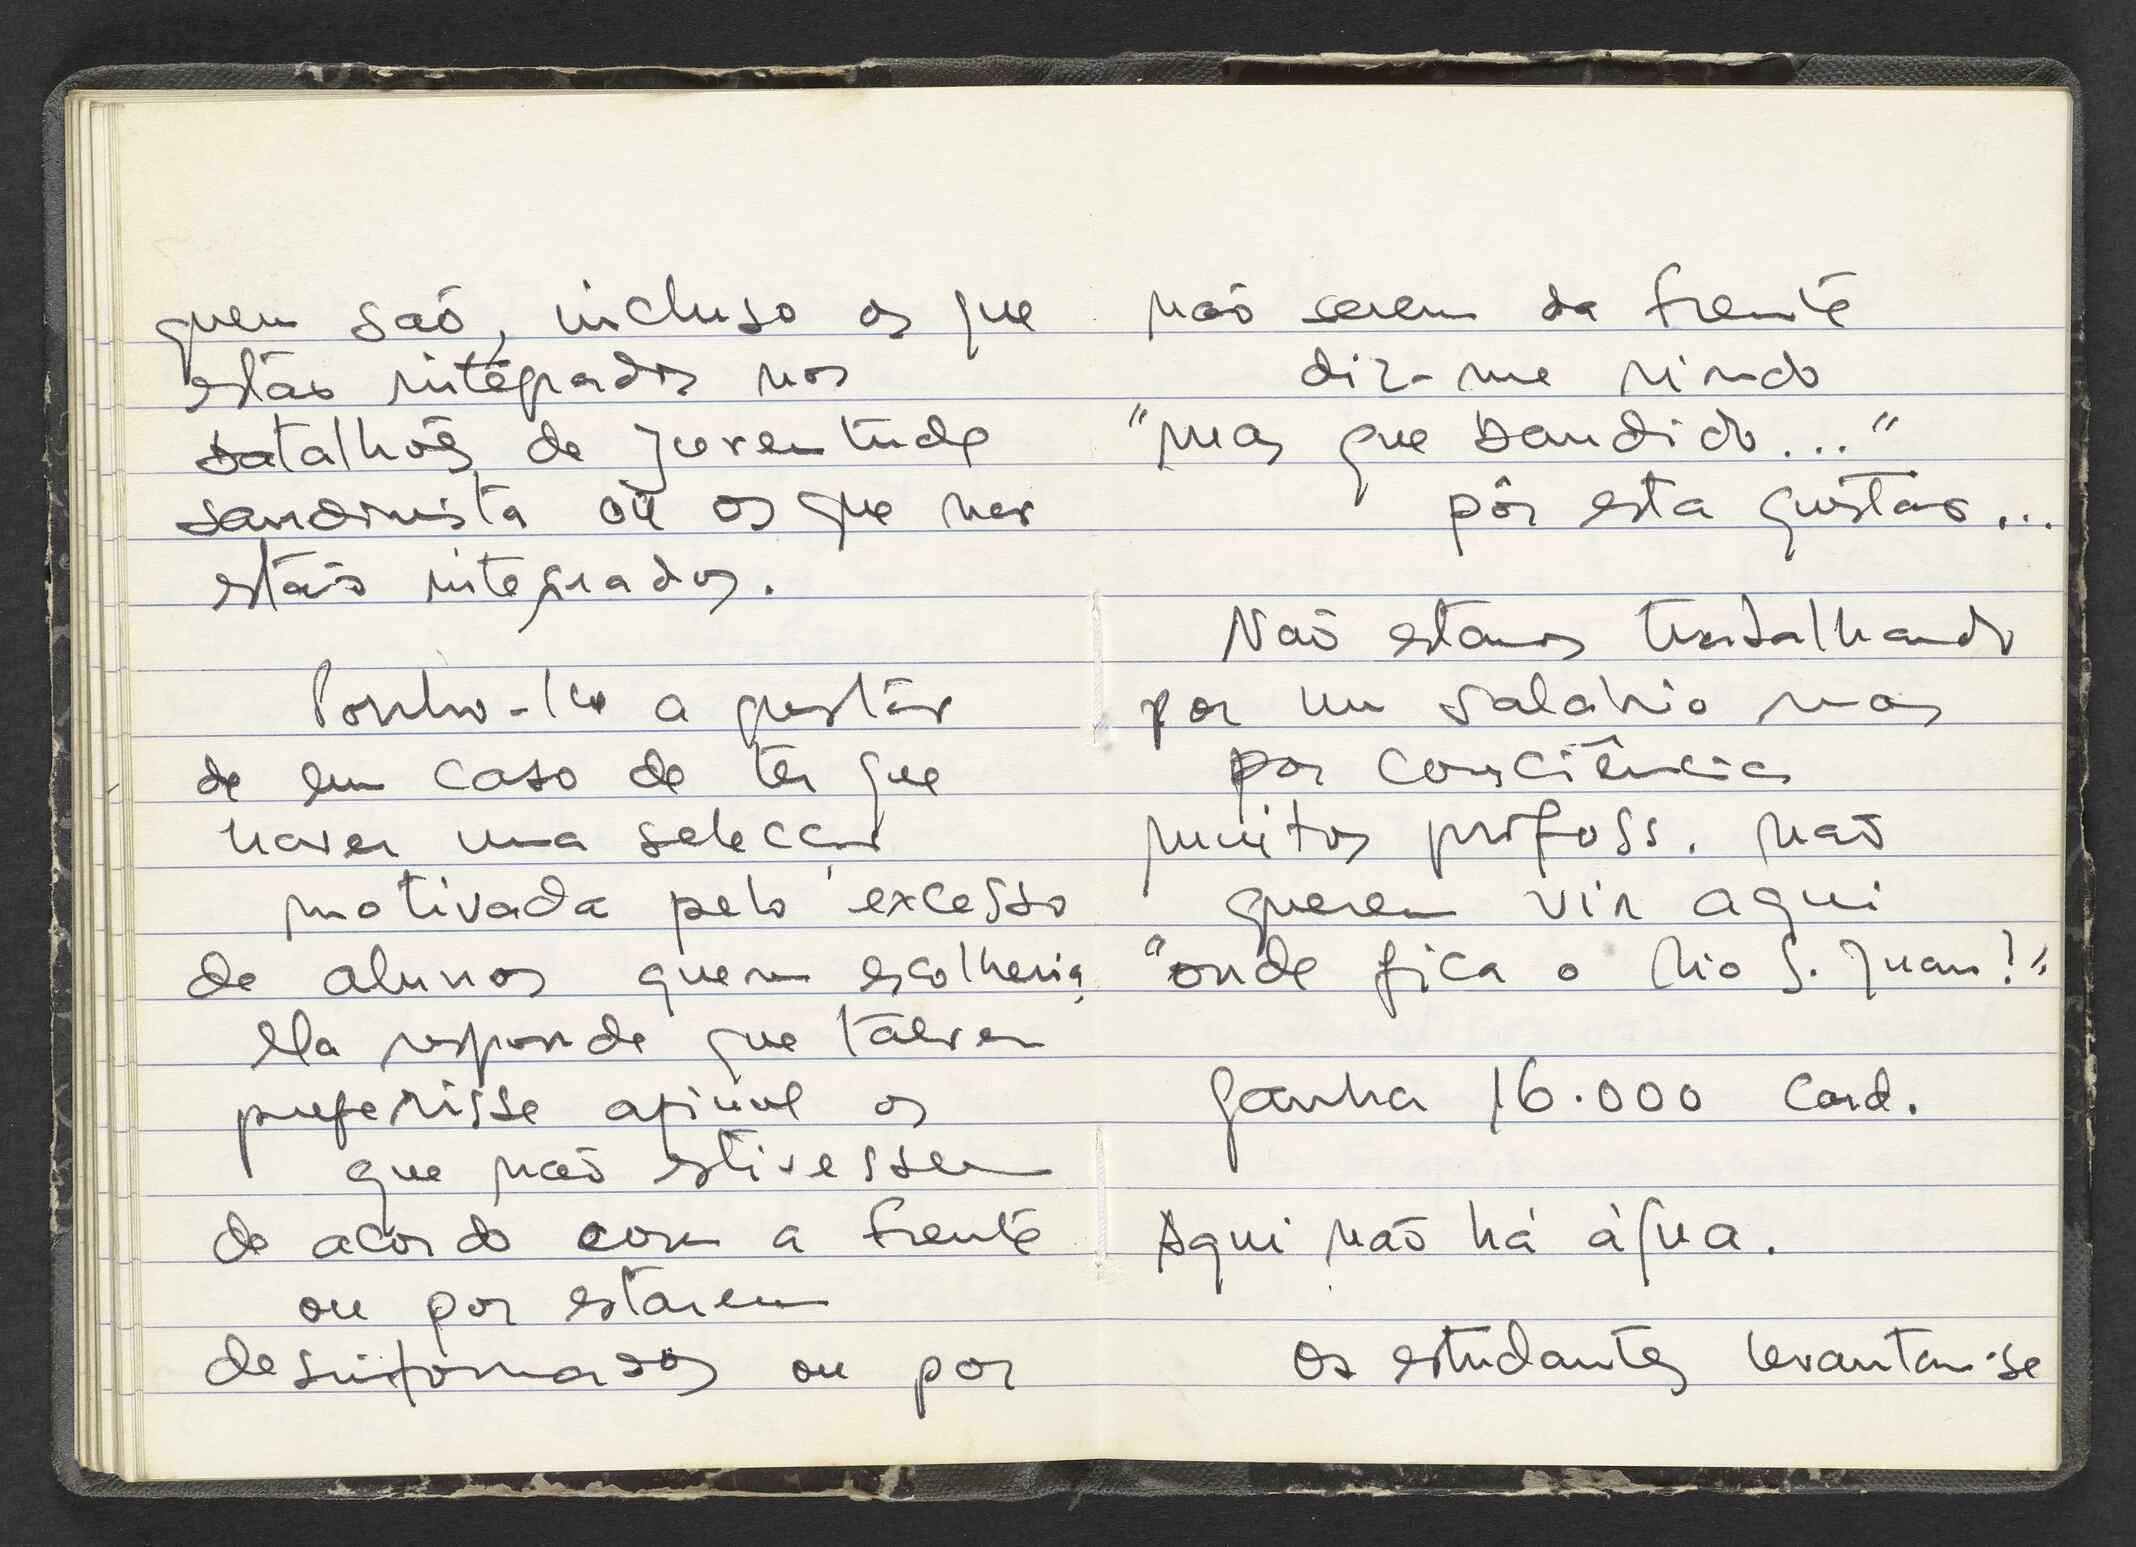 quem são, incluso os que
estão integrados nos
batalhões de juventude
sandinista ou os que nao
estão integrados.
Ponho-lhe a questão
de em caso de ter que
haver uma selecção
motivada pelo excesso
de alunos quem escolheria,
ela responde que talvez
preferisse afinal os
que não estivessem
de acordo com a frente
ou por estarem
desinformados ou por
não serem da frente
diz-me rindo
"mas que bandido..."
pôr esta questão...
Não estamos trabalhando
por um salario mas
por consciência
muitos profess. não
querem vir aqui
"onde fica o Rio S. Juan?"
Ganha 16.000 Cord.
Aqui não há àgua.
Os estudantes levantam-se